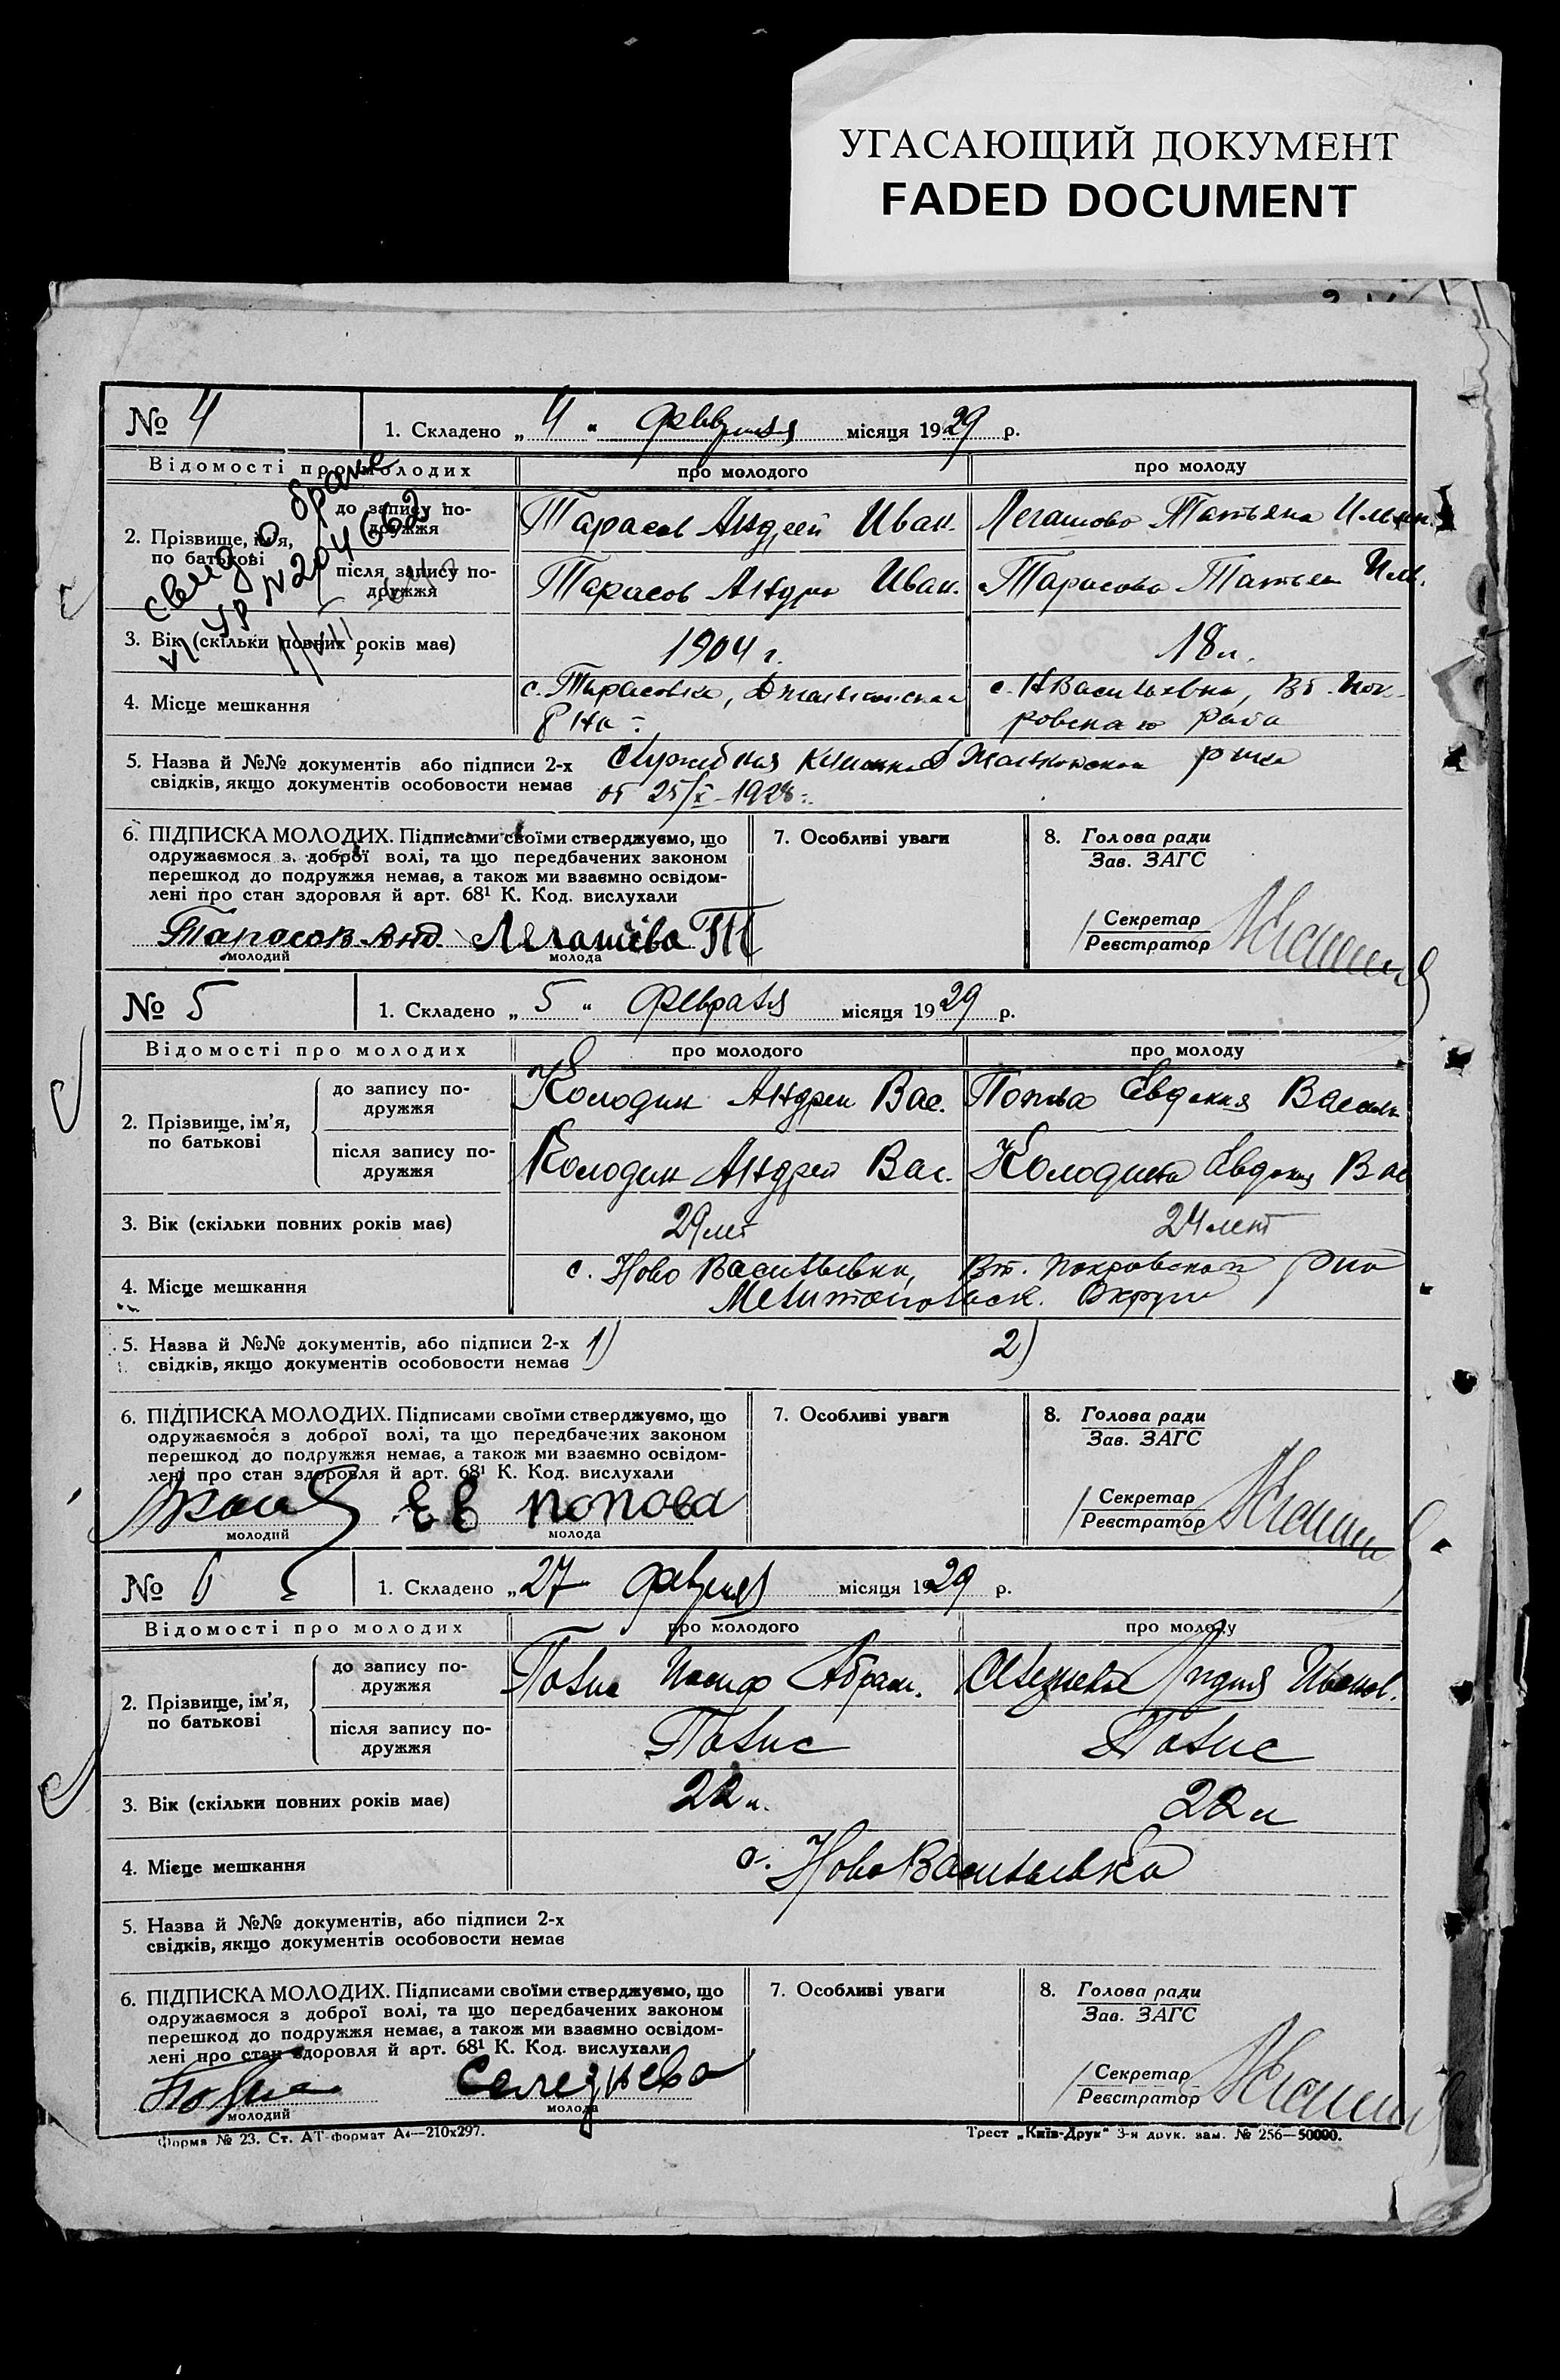 УГАСАЮЩИЙ ДОКУМЕНТ
FADED DOCUMENT
№ 4
1. Складено „ 4 “ февраля місяця 1929 р.
Відомості про молодих
про молодого
про молоду
свид. о браке
№ 204662
2. Прізвище, ім’я,
по батькові
до запису по-
дружжя
Тарасов Андрей Иван.
Татьяна Ильин.
після запису по-
дружжя
Тарасов Андре Иван.
Тарасова Татьян Ил.
3. Вік (скільки повних років має)
1904 г.
18 л.
4. Місце мешкання
с. Тарасовка,
р на
с. НВасильевка, Вт. Пок-
ровская
5. Назва й №№ документів або підписи 2-х
свідків, якщо документів особовости немає
от 25/X - 1928
6. ПІДПИСКА МОЛОДИХ. Підписами своїми стверджуємо, що
одружаємося з доброї волі, та що передбачених законом
перешкод до подружжя немає, а також ми взаємно освідом-
лені про стан здоровля й арт. 68¹ К. Код. вислухали
Тарасов Анд. Легашёва Т
молодий
молода
7. Особливі уваги
8. Голова ради
Зав. ЗАГС
Секретар
Реєстратор
№ 5
1. Складено „ 5 “ февраля місяця 1929 р.
Відомості про молодих
про молодого
про молоду
2. Прізвище, ім’я,
по батькові
до запису по-
дружжя
Колодин Андреи Вас.
Попова Евдокия Василь
після запису по-
дружжя
Колодин Андрей Вас.
Колодина Евдокия Вас
3. Вік (скільки повних років має)
29 лет
24 лет
4. Місце мешкання
с. Ново Васильевки, Вт. Покровской р на
Мелитопольск. Округи
5. Назва й №№ документів, або підписи 2-х
свідків, якщо документів особовости немає
1)
2)
6. ПІДПИСКА МОЛОДИХ. Підписами своїми стверджуємо, що
одружаємося з доброї волі, та що передбачених законом
перешкод до подружжя немає, а також ми взаємно освідом-
лені про стан здоровля й арт. 68¹ К. Код. вислухали
Е В попова
молодий
молода
7. Особливі уваги
8. Голова ради
Зав. ЗАГС
Секретар
Реєстратор
№ 6
1. Складено „ 27 февраля місяця 1929 р.
Відомості про молодих
про молодого
про молоду
2. Прізвище, ім’я,
по батькові
до запису по-
дружжя
Иосиф Абрам.
Селезнева Лидия Иванов.
після запису по-
дружжя
3. Вік (скільки повних років має)
22 л.
22 л
4. Місце мешкання
с. Ново Васильевка
5. Назва й №№ документів, або підписи 2-х
свідків, якщо документів особовости немає
6. ПІДПИСКА МОЛОДИХ. Підписами своїми стверджуємо, що
одружаємося з доброї волі, та що передбачених законом
перешкод до подружжя немає, а також ми взаємно освідом-
лені про стан здоровля й арт. 68¹ К. Код. вислухали
Селезнева
молодий
молода
7. Особливі уваги
8. Голова ради
Зав. ЗАГС
Секретар
Реєстратор
Форма № 23. Ст. АТ формат А4—210х297.
Трест „Київ-Друк“ 3-я друк. зам. № 256—50000.